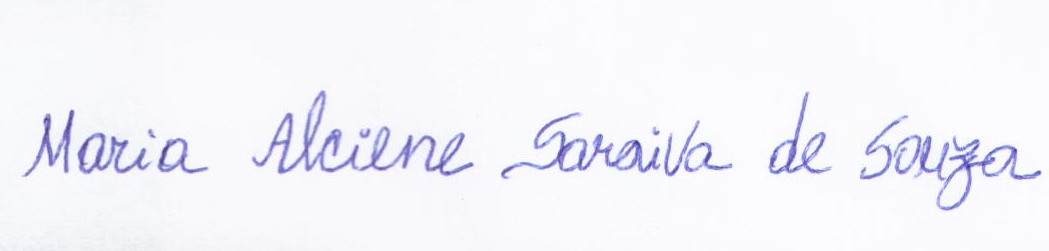 Maria Alciene Saraiva de Souza